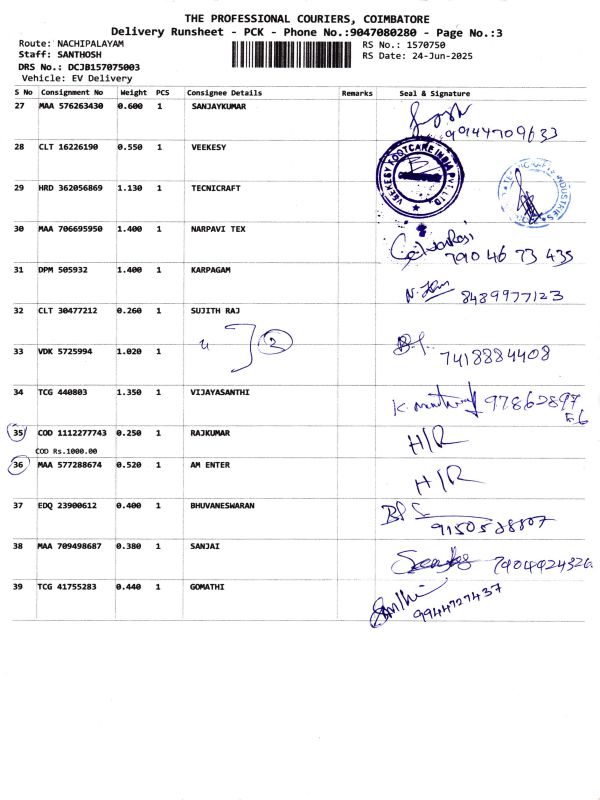 THE PROFESSIONAL COURIERS, COIMBATORE
Delivery Runsheet - PCK - Phone No.:9047080280 - Page No.:3
Route: NACHIPALAYAM RS No.: 1570750
Staff: SANTHOSH RS Date: 24-Jun-2025
DRS No.: DCJB157075003
Vehicle: EV Delivery
S No Consignment No Weight PCS Consignee Details Remarks Seal & Signature
27 MAA 576263430 0.600 1 SANJAYKUMAR
9944709633
28 CLT 16226190 0.550 1 VEEKESY
VEEKESY FOOTCARE INDIA PVT. LTD
INDUSTRIES
29 HRD 362056869 1.130 1 TECNICRAFT
30 MAA 706695950 1.400 1 NARPAVI TEX
790 46 73 435
31 DPM 505932 1.400 1 KARPAGAM
8489977123
32 CLT 30477212 0.260 1 SUJITH RAJ
2
33 VDK 5725994 1.020 1
7418884408
34 TCG 440803 1.350 1 VIJAYASANTHI
35 COD 1112277743 0.250 1 RAJKUMAR H/R
COD Rs.1000.00
36 MAA 577288674 0.520 1 AM ENTER H/R
37 EDQ 23900612 0.400 1 BHUVANESWARAN
38 MAA 709498687 0.380 1 SANJAI
7904924326
39 TCG 41755283 0.440 1 GOMATHI
9944727437